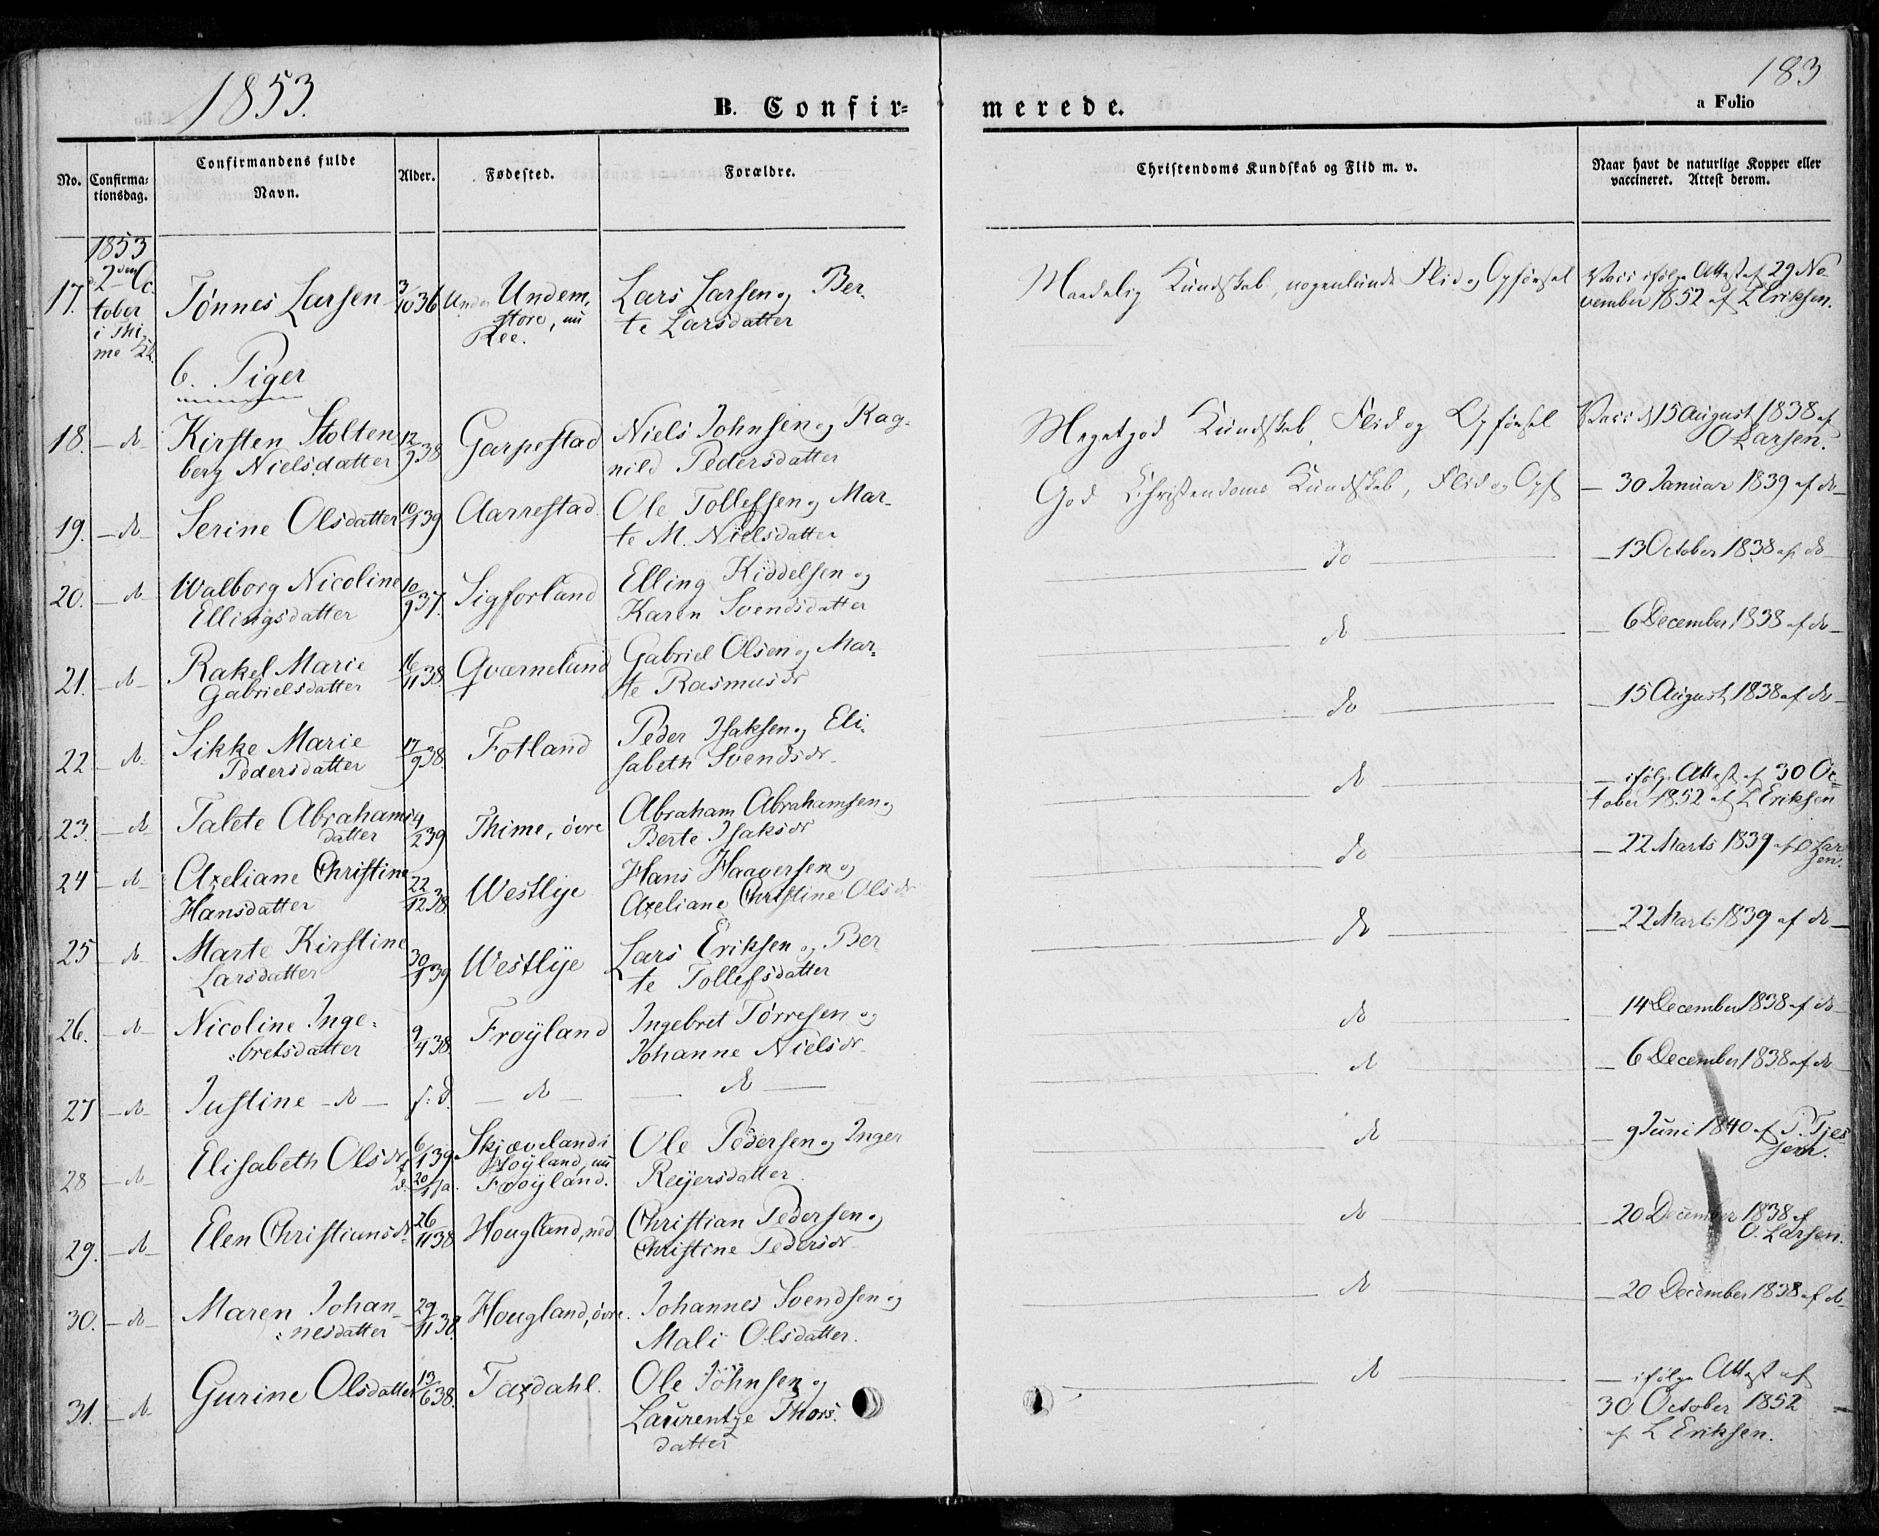 1853.
B. Confirmerede.
183
a Folio
No.
Confirmationsdag.
Confirmandens fulde Navn.
Alder.
Fødested.
Forældre.
Christendoms Kundskab og Flid m. v.
Naar havt de naturlige Kopper eller vaccineret. Attest derom.
1853
17. 2den Oc- Tönnes Larsen 3/10 36 Undem, Lars Larsen og Ber- Maadelig Kundskab, nogenlunde Flid og Opförsel Vacc ifölge Attest af 29 No-
tober store, nu te Larsdatter vember 1852 af L Eriksen.
i Thi- Ree.
me
6. Piger
18. - do Kirsten Stolten 12/9 38 Garpestad Niels Johnsen og Rag- Megetgod Kundskab, Flid og Opförsel Vacc d 15 August 1838 af
berg Nielsdatter nild Pedersdatter O Larsen.
19. - do - Serine Olsdatter 10/1 39 Aarrestad. Ole Tollefsen og Mar- God Christendoms Kundskab, Flid og Opf - 30 Januar 1839 af do -
te M. Nielsdatter
20. - do Walborg Nicoline 10/9 37. Sigforland Elling Kiddelsen og do - 13 October 1838 af do -
Ellingsdatter Karen Svendsdatter
21. - do - Rakel Marie 16/11 38. Qværneland Gabriel Olsen og Mar- do - 6 December 1838 af do -
Gabrielsdatter te Rasmusdr
22 - do - Sikke Marie 17/9 38. Fotland Peder Isaksen og Eli- do - 15 August 1838 af do -
Pedersdatter sabeth Svendsdr
23. - do Talete Abrahams 14/2 39 Thime, övre Abraham Abrahamsen og do - ifölge Attest af 30 Oc-
datter Berte Isaksdr tober 1852 af L Eriksen
24 - do - Axeliane Christine 22/12 38. Westlye Hans Haaversen og do - 22 Marts 1839 af O Lar
Hansdatter Axeliane Christine Olsdr sen.
25 - do - Marte Kirstine 30/1 39 Westlye Lars Eriksen og Ber do - 22 Marts 1839 af do -
Larsdatter te Tollefsdatter
26. - do - Nicoline Inge- 9/4 38. Fröyland Ingebret Törresen og do - 14 December 1838 af do -
bretsdatter Johanne Nielsdr
27 - do - Justine - do - s: d. - do - - do - do - 6 December 1838 af do -
28 - do - Elisabeth Olsdr 6/1 39 Skjæveland i Ole Pedersen og Inger do - 9 Juni 1840 af P. Tjes
Höyland, nu Reijersdatter. sem.
Fröyland.
29. - do - Elen Christiansdr 26/11 38 Hougland, ned. Christian Pedersen og do - 20 December 1838 af
Christine Pedersdr O. Larsen.
30. - do - Maren Johan- 29/11 38. Hougland, övre. Johannes Svendsen og do - 20 December 1838 af do -
nesdatter Mali Olsdatter.
31. - do - Gurine Olsdatter 13/6 38. Taxdahl. Ole Johnsen og do - ifölge Attest af
Laurentze Thors- 30 October 1852
datter af L Eriksen.